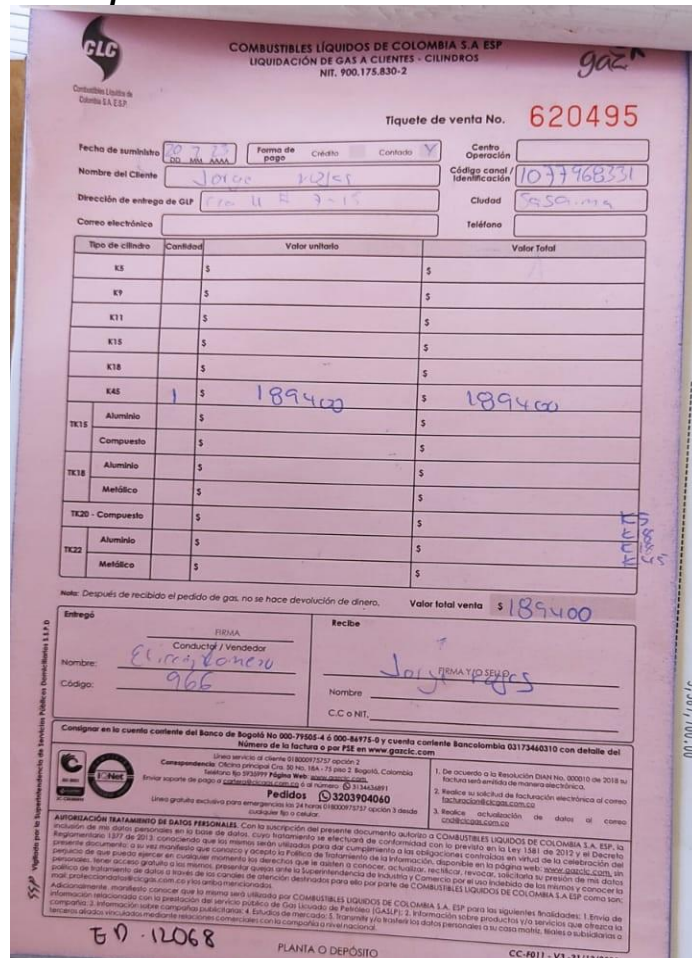 CLC
Combustibles Líquidos de
Colombia S.A. E.S.P.
COMBUSTIBLES LÍQUIDOS DE COLOMBIA S.A ESP
LIQUIDACIÓN DE GAS A CLIENTES - CILINDROS
NIT. 900.175.830-2
gaz
Tiquete de venta No. 620495
Fecha de suministro 20 7 23 Forma de pago Crédito Contado Y Centro Operación
DD MM AAAA
Nombre del Cliente Jorge rojas Código canal / Identificación 1077968331
Dirección de entrega de GLP 7-15 Ciudad Sasaima
Correo electrónico Teléfono
Tipo de cilindro Cantidad Valor unitario Valor Total
K5 $ $
K9 $ $
K11 $ $
K15 $ $
K18 $ $
K45 1 $ 189400 $ 189400
TK15 Aluminio $ $
Compuesto $ $
TK18 Aluminio $ $
Metálico $ $
TK20 - Compuesto $ $
TK22 Aluminio $ $
Metálico $ $
Nota: Después de recibido el pedido de gas, no se hace devolución de dinero. Valor total venta $ 189400
Entregó Recibe
FIRMA
Conductor / Vendedor
Nombre:
Código: 966
Jorge rojas
FIRMA Y/O SELLO
Nombre
C.C o NIT.
Consignar en la cuenta corriente del Banco de Bogotá No 000-79505-4 ó 000-86975-0 y cuenta corriente Bancolombia 03173460310 con detalle del
Número de la factura o por PSE en www.gazclc.com
Línea servicio al cliente 018000975757 opción 2
Correspondencia: Oficina principal Cra. 50 No. 18A - 75 piso 2 Bogotá, Colombia
Teléfono fijo 5935999 Página Web: www.gazclc.com
Enviar soporte de pago a cartera@clcgas.com.co ó al número 3134636891
Pedidos 3203904060
Línea gratuita exclusiva para emergencias las 24 horas 018000975757 opción 3 desde
cualquier fijo o celular.
1. De acuerdo a la Resolución DIAN No. 000010 de 2018 su
factura será emitida de manera electrónica.
2. Realice su solicitud de facturación electrónica al correo
facturacion@clcgas.com.co
3. Realice actualización de datos al correo
cnd@clcgas.com.co
IQNet
AUTORIZACIÓN TRATAMIENTO DE DATOS PERSONALES. Con la suscripción del presente documento autorizo a COMBUSTIBLES LIQUIDOS DE COLOMBIA S.A. ESP, la
inclusión de mis datos personales en la base de datos, cuyo tratamiento se efectuará de conformidad con lo previsto en la Ley 1581 de 2012 y el Decreto
Reglamentario 1377 de 2013; conociendo que los mismos serán utilizados para dar cumplimiento a las obligaciones contraídas en virtud de la celebración del
presente documento; a su vez manifiesto que conozco y acepto la Política de Tratamiento de la Información, disponible en la página web: www.gazclc.com, sin
perjuicio de que pueda ejercer en cualquier momento los derechos que le asisten a conocer, actualizar, rectificar, revocar, solicitarla su presión de mis datos
personales, tener acceso gratuito a los mismos, presentar quejas ante la Superintendencia de Industria y Comercio por el uso indebido de los mismos y conocer la
política de tratamiento de datos a través de los canales de atención destinados para ello por parte de COMBUSTIBLES LIQUIDOS DE COLOMBIA S.A ESP como son:
Adicionalmente, manifiesto conocer que la misma será utilizada por COMBUSTIBLES LIQUIDOS DE COLOMBIA S.A. ESP para las siguientes finalidades: 1. Envío de
información relacionada con la prestación del servicio público de Gas Licuado de Petróleo (GASLP); 2. Información sobre productos y/o servicios que ofrezca la
compañía; 3. Información sobre campañas publicitarias; 4. Estudios de mercado; 5. Transmita y/o trasferir los datos a su casa matriz, filiales o subsidiarias o
terceros aliados vinculados mediante relaciones comerciales con la compañía a nivel nacional.
Vigilado por la Superintendencia de Servicios Públicos Domiciliarios S.S.P.D
12068
PLANTA O DEPÓSITO